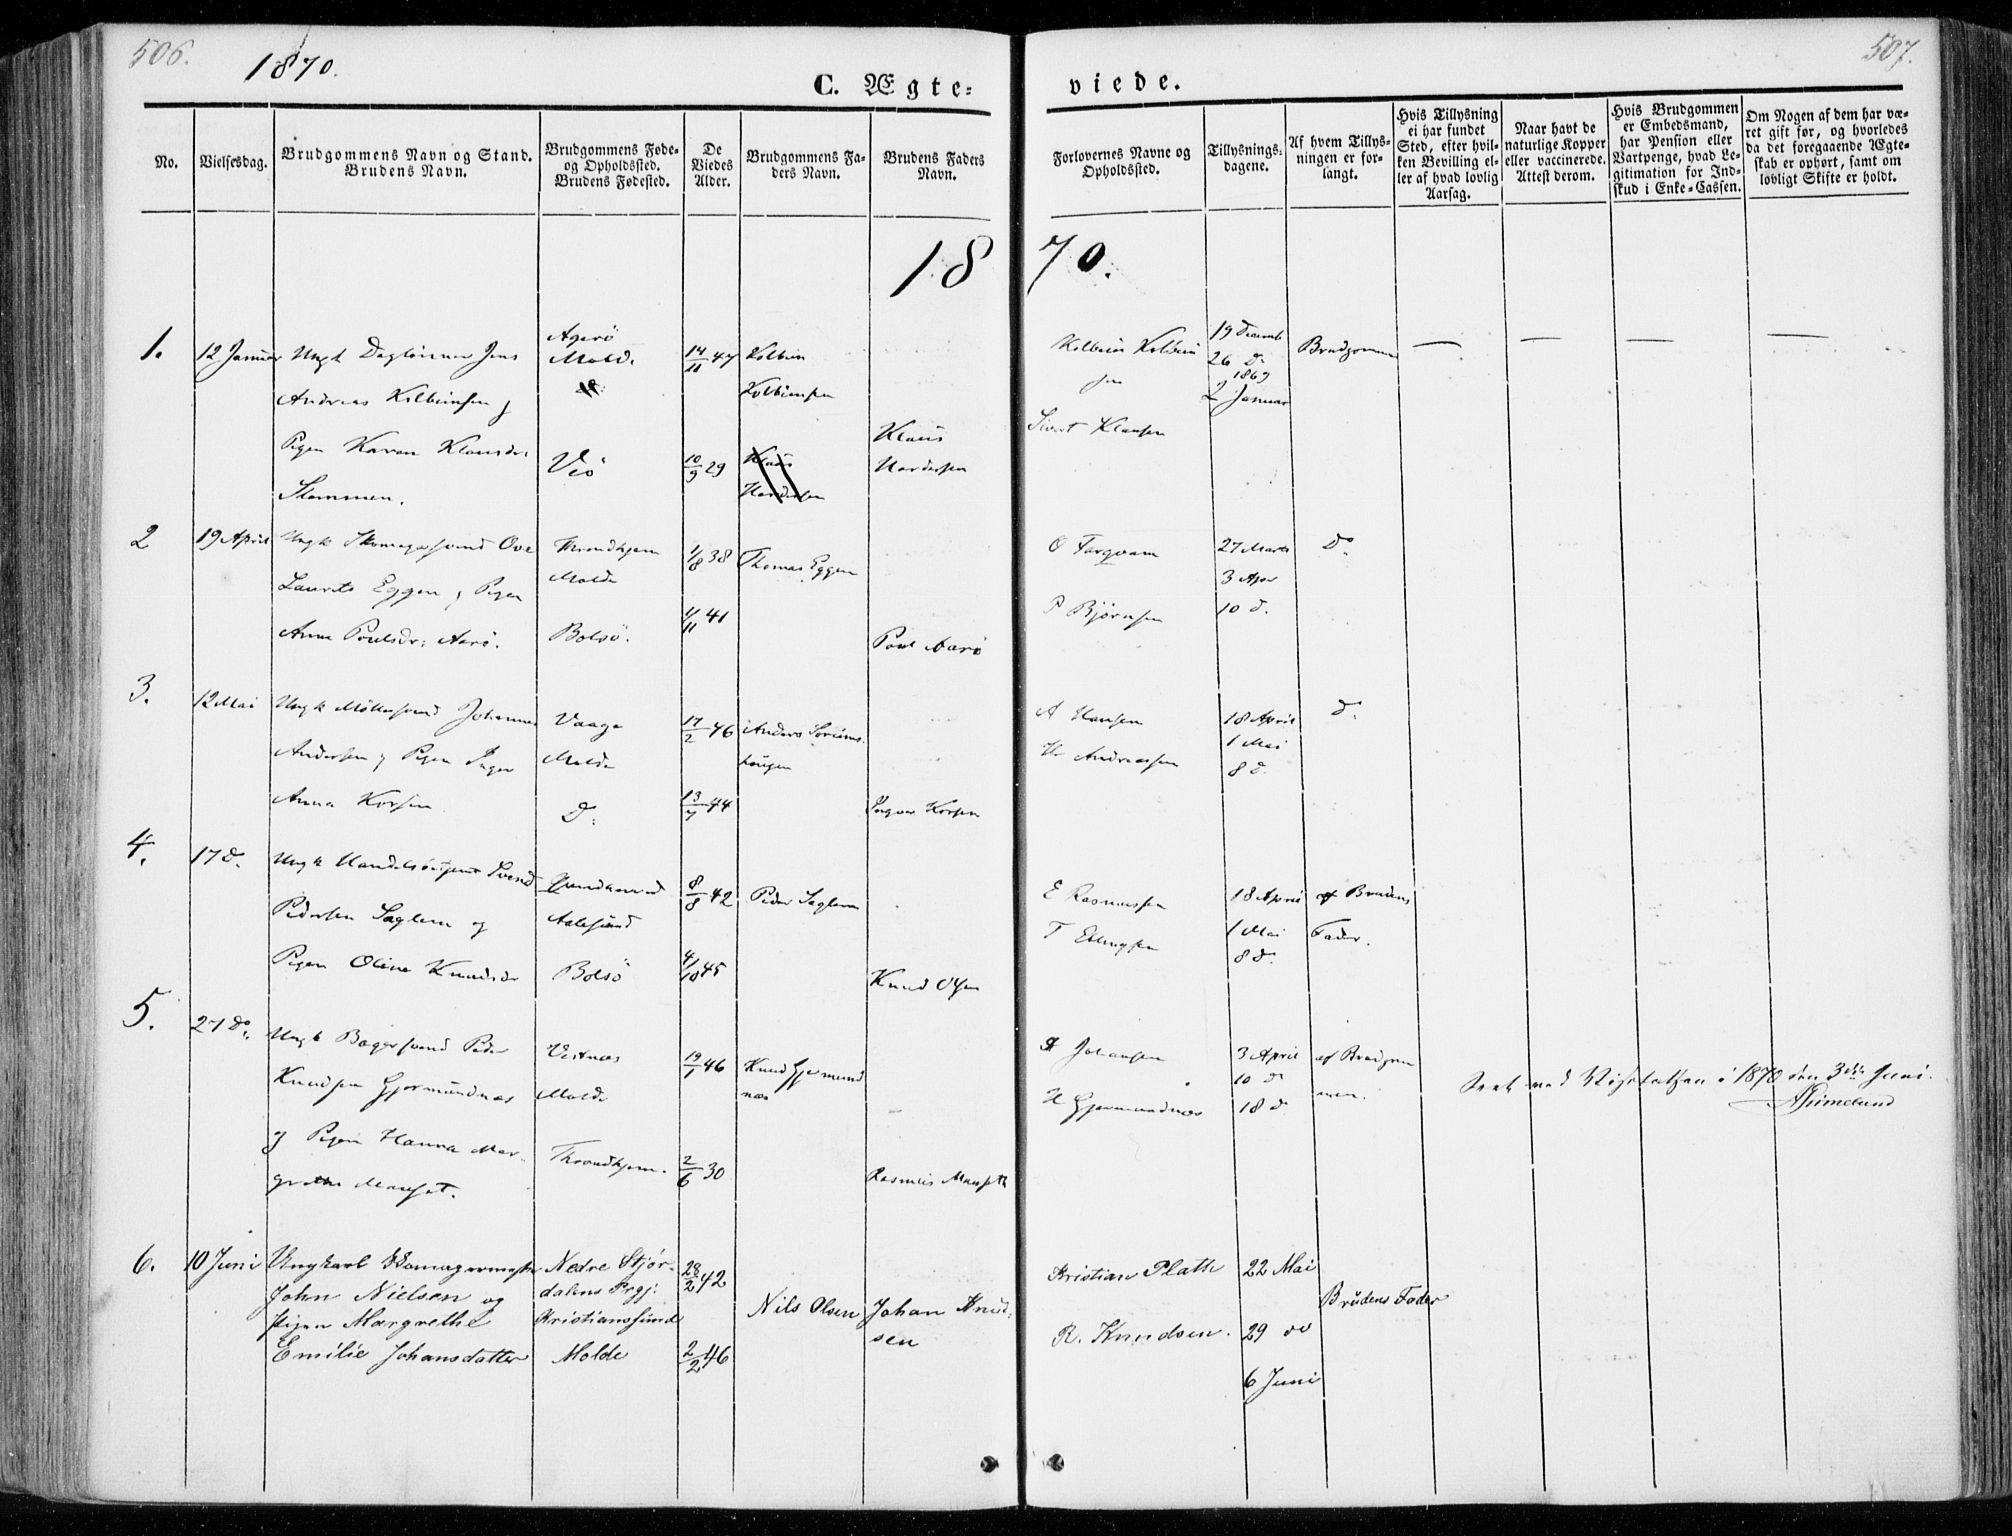 506.
1870.
C. Ægte-
viede.
507.
No.
Vielsesdag.
Brudgommens Navn og Stand.
Brudens Navn.
Brudgommens Føde-
og Opholdssted.
Brudens Fødested.
De
Viedes
Alder.
Brudgommens Fa-
ders Navn.
Brudens Faders
Navn.
Forlovernes Navne og
Opholdssted.
Tillysnings-
dagene.
Af hvem Tillys-
ningen er for-
langt.
Hvis Tillysning
ei har fundet
Sted, efter hvil-
ken Bevilling el-
ler af hvad lovlig
Aarsag.
Naar havt de
naturlige Kopper
eller vaccinerede.
Attest derom.
Hvis Brudgommen
er Embedsmand,
har Pension eller
Vartpenge, hvad Le-
gitimation for Ind-
skud i Enke-Cassen.
Om Nogen af dem har væ-
ret gift før, og hvorledes
da det foregaaende Ægte-
skab er ophørt, samt om
lovligt Skifte er holdt.
1870.
1.
12 Januar
Ungk Jens
Andreas Kolbeinsen &
Pigen Karen Klausdr:
Stammen.
Agerö
Molde
Veö
14/11 47
10/9 29
Kolbein
Kolbeinsen
Klaus
Klaus
Kolbein Kolbein
sen
Sivert Klausen
19 Decemb
26 d.
1869
2 Januar
Brudgommen
— — — —
2
19 April
Ungk Skomagersvend Ove
Laurits Eggen & Pigen
Anne Poulsdr: Aarö.
Throndhjem
Molde
Bolsö.
1/8 38
1/11 41
Thomas Eggen
Poul Aarö
O Torqvam
P Björnsen
27 Marts
3 Apr
10 d.
Do
3.
12 Mai
Ungk Möllersvend Johannes
Andersen & Pigen Inger
Anna Korsen
Vaage
Molde
d:
17/2 46
13/7 44
Anders
haugen
Ingvar Korsen
A Hansen
H Andreassen
18 April
1 Mai
8 d.
d.
4.
17 d.
Ungk Handelsbetjent Svend
Pedersen Saglem og
Pigen Oline Knudsdr
Aalesund
Bolsö
8/8 42
4/10 45
Peder Saglem
Knud Olsen
E Rasmussen
T
18 April
1 Mai
8 d.
af Brudens
Fader.
5.
27 do.
Ungk Bagersvend Peder
Knudsen Gjermundnæs
& Pigen Hanna Mar-
grethe Manset.
Vestnæs
Molde
Throndhjem.
19/1 46
2/6 30
Knud Gjermund
næs
Rasmus Manseth
A Johansen
H Gjermundnæs
3 April
10 d
18 d.
af Brudgom
men.
Seet ved Visitatsen i 1870 den 3die Juni.
AGrimelund
6.
10 Juni
Ungkarl Skomagermester
John Nielsen og
Pigen Margrethe
Emilie Johansdatter
Nedre Stjør-
dalens Prgj:
Kristianssund
Molde
28/2 42
2/2 46
Nils Olsen
Johan Knud-
sen
Kristian Plath
R. Knudsen.
22 Mai
29 do
6 Juni
Brudens Fader